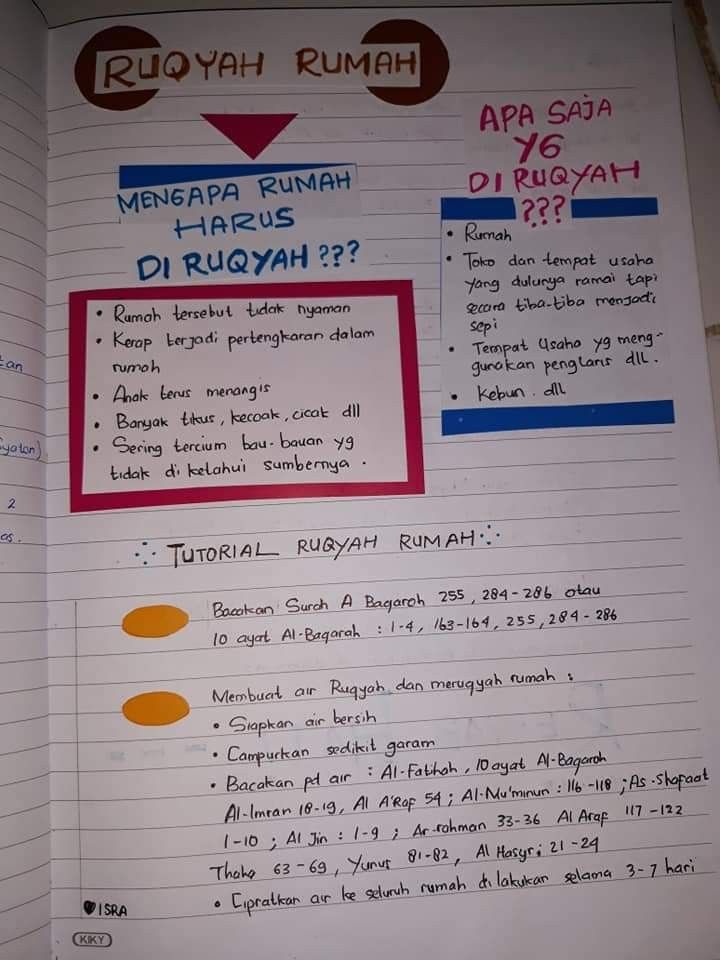 RUQYAH RUMAH
MENGAPA RUMAH
HARUS
DI RUQYAH ???
• Rumah tersebut tidak nyaman
• Kerap terjadi pertengkaran dalam
rumah
• Anak terus menangis
• Banyak tikus, kecoak, cicak dll
• Sering tercium bau-bauan yg
tidak di ketahui sumbernya.
APA SAJA
YG
DI RUQYAH
???
• Rumah
• Toko dan tempat usaha
yang dulunya ramai tapi
secara tiba-tiba menjadi
sepi
• Tempat Usaha yg meng-
gunakan penglaris dll.
• Kebun. dll
TUTORIAL RUQYAH RUMAH
Bacakan Surah A Baqaroh 255, 284-286 atau
10 ayat Al-Baqarah : 1-4, 163-164, 255, 284-286
Membuat air Ruqyah dan meruqyah rumah :
• Siapkan air bersih
• Campurkan sedikit garam
• Bacakan pd air : Al-Fatihah, 10 ayat Al-Baqaroh
Al-Imran 18-19, Al A'Raf 54 ; Al-Mu'minun : 116-118 ; As-Shafaat
1-10 ; Al Jin : 1-9 ; Ar-rohman 33-36 Al Araf 117-122
Thoha 63-69, Yunus 81-82, Al Hasyr ; 21-24
• Cipratkan air ke seluruh rumah di lakukan selama 3-7 hari
ISRA
KIKY
tan
Syaton)
2
as.